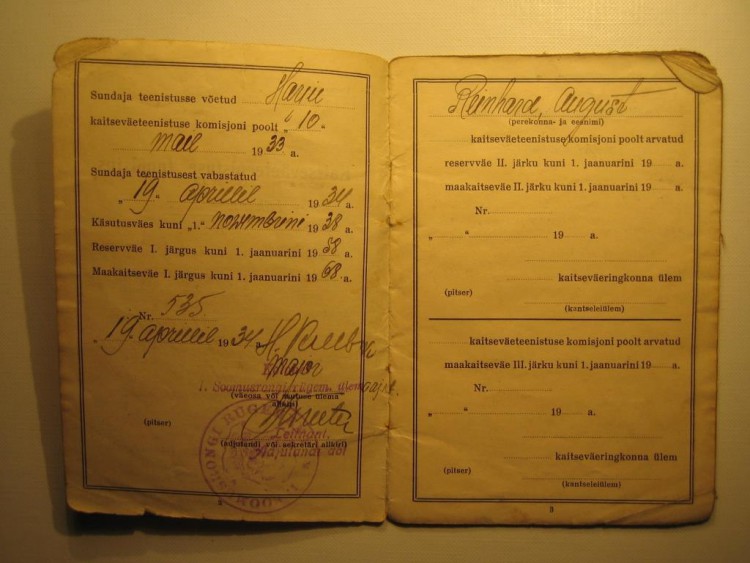 Sundaja teenistusse võetud Harju
kaitseväeteenistuse komisjoni poolt „10"
mail 1933 a.
Sundaja teenistusest vabastatud
„19" aprillil 1934 a.
Käsutusväes kuni „1." novembrini 1938 a.
Reservväe I. järgus kuni 1. jaanuarini 1958 a.
Maakaitseväe I. järgus kuni 1. jaanuarini 1968 a.
Nr. 535
„19." aprillil 1934 a.
major
1. Soomusrongi rügem. ülem
(väeosa või asutuse ülema
allkiri)
(pitser)
Leitnant,
(adjutandi või sekretäri allkiri)
Adjutandi abi
Reinhard, August
(perekonna- ja eesnimi)
kaitseväeteenistuse komisjoni poolt arvatud
reservväe II. järku kuni 1. jaanuarini 19 a.
maakaitseväe II. järku kuni 1. jaanuarini 19 a.
Nr.
„ " 19 a.
kaitseväeringkonna ülem
(pitser)
(kantseleiülem)
kaitseväeteenistuse komisjoni poolt arvatud
maakaitseväe III. järku kuni 1. jaanuarini 19 a.
Nr.
„ " 19 a.
kaitseväeringkonna ülem
(pitser)
(kantseleiülem)
3